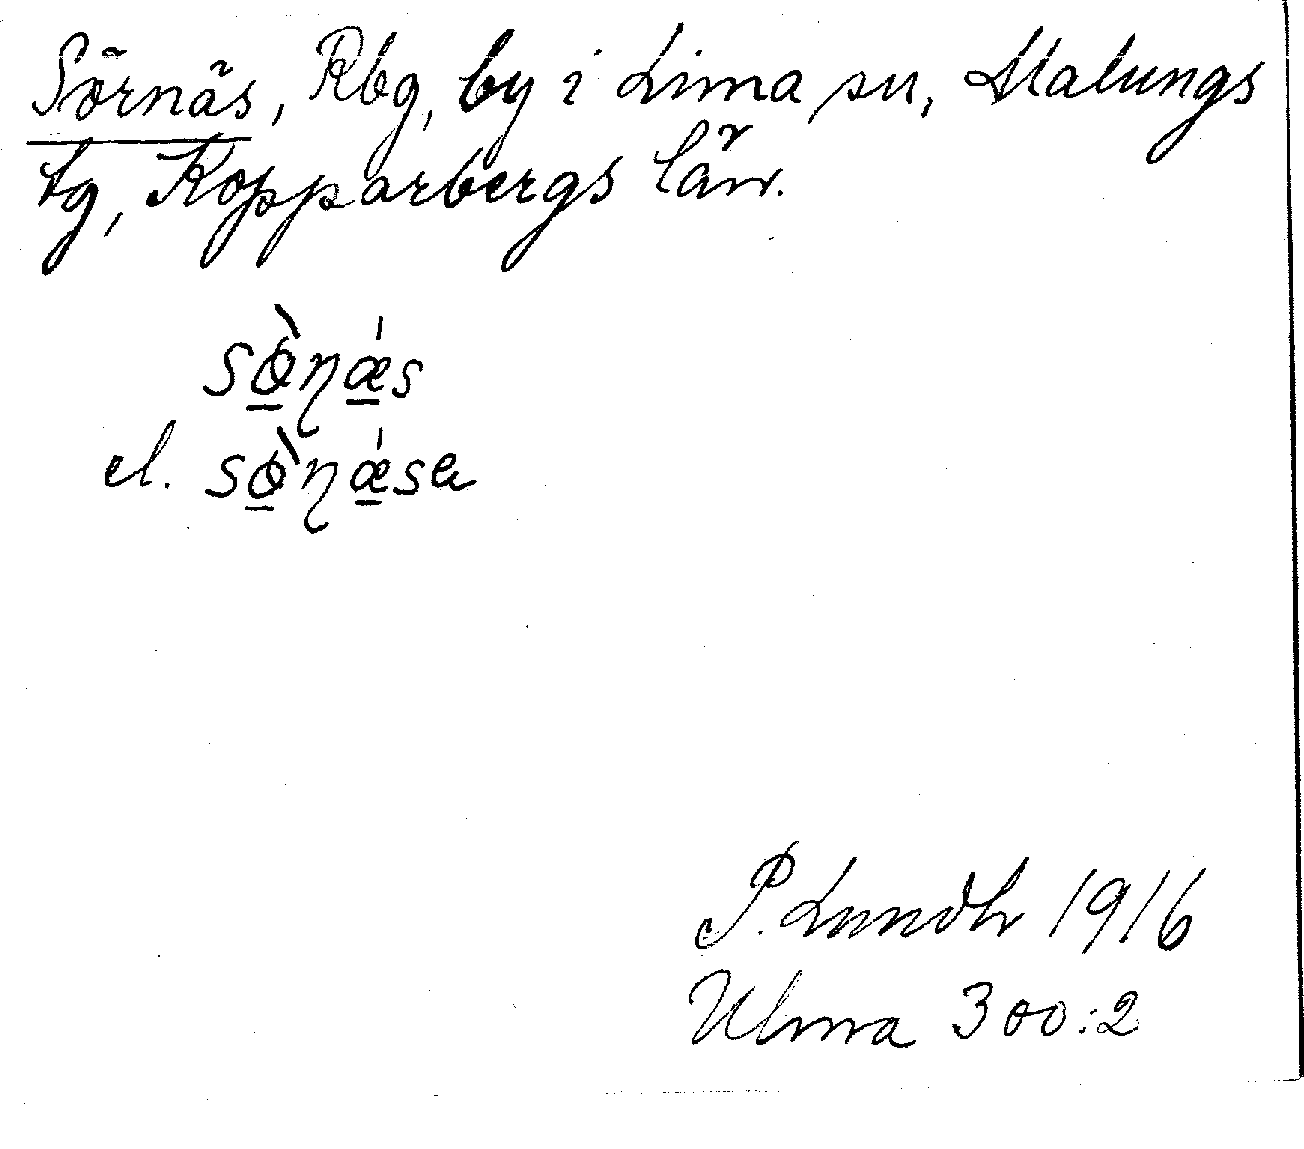 Sörnäs, Rbg, by i Lima sn, Malungs
tg, Kopparbergs län.
sø̱̀ɳǽ̱s
el. sø̱̀ɳǽ̱sa
P. Lundh 1916
Ulma 300:2